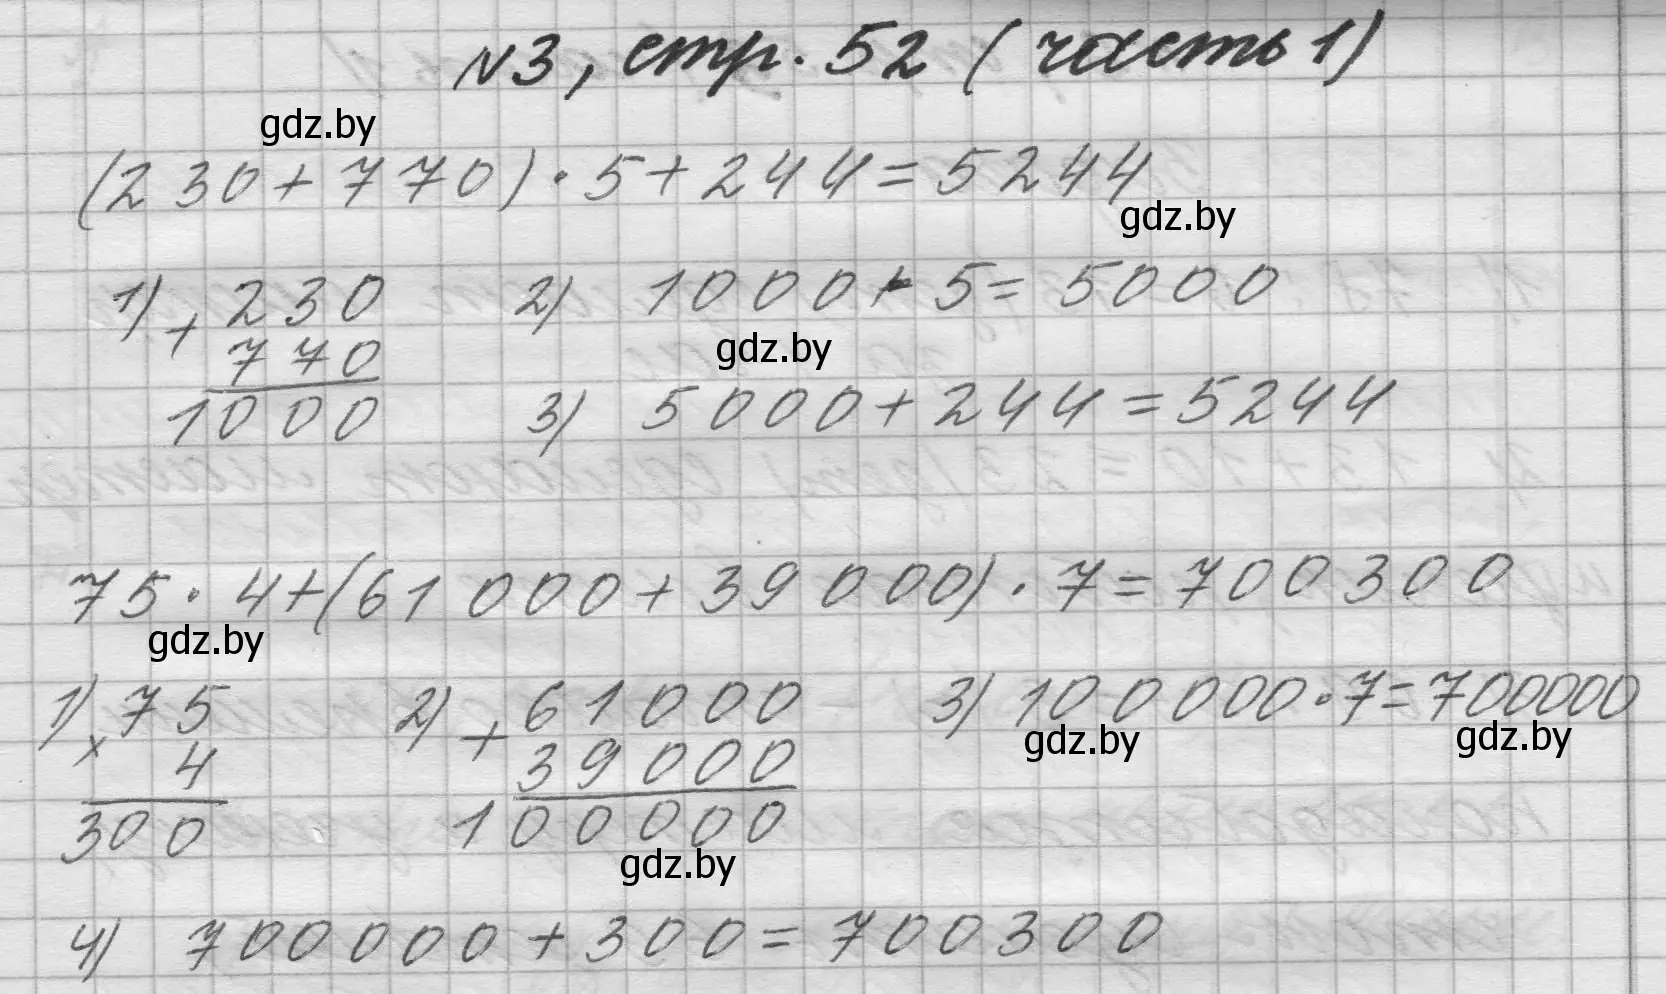 №3, стр. 52 (часть 1)
gdz.by
(230+770)·5+244=5244
gdz.by
1) +230
770
1000
2) 1000·5=5000
gdz.by
3) 5000+244=5244
75·4+(61000+39000)·7=700300
gdz.by
1) ×75
4
300
2) +61000
39000
100000
gdz.by
3) 100000·7=700000
gdz.by
gdz.by
4) 700000+300=700300